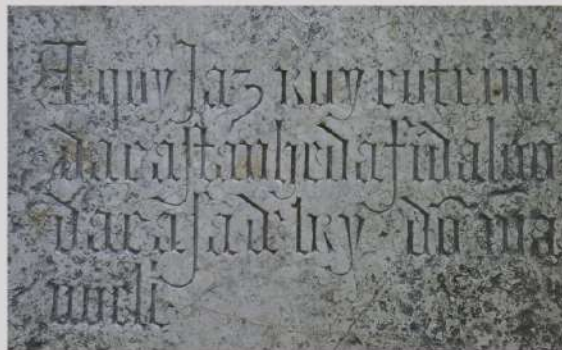 Aquy Jaz Ruy cutrim
dacastanheda fidalguo
da casa delRey · dõ ma
nuell